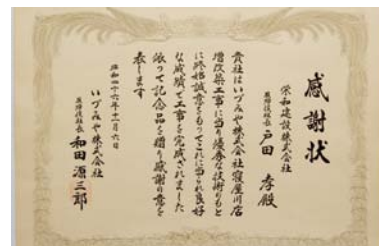 感謝状
栄和建設株式会社
取締役社長 戸田 孝殿
貴社はいづみや株式会社寝屋川店
増改築工事に当り優秀な技術のもと
に終始誠意をもってこれに当られ良好
な成績で工事を完成されました
依って記念品を贈り感謝の意を
表します
昭和四十六年十一月六日
いづみや株式会社
取締役社長 和田源三郎